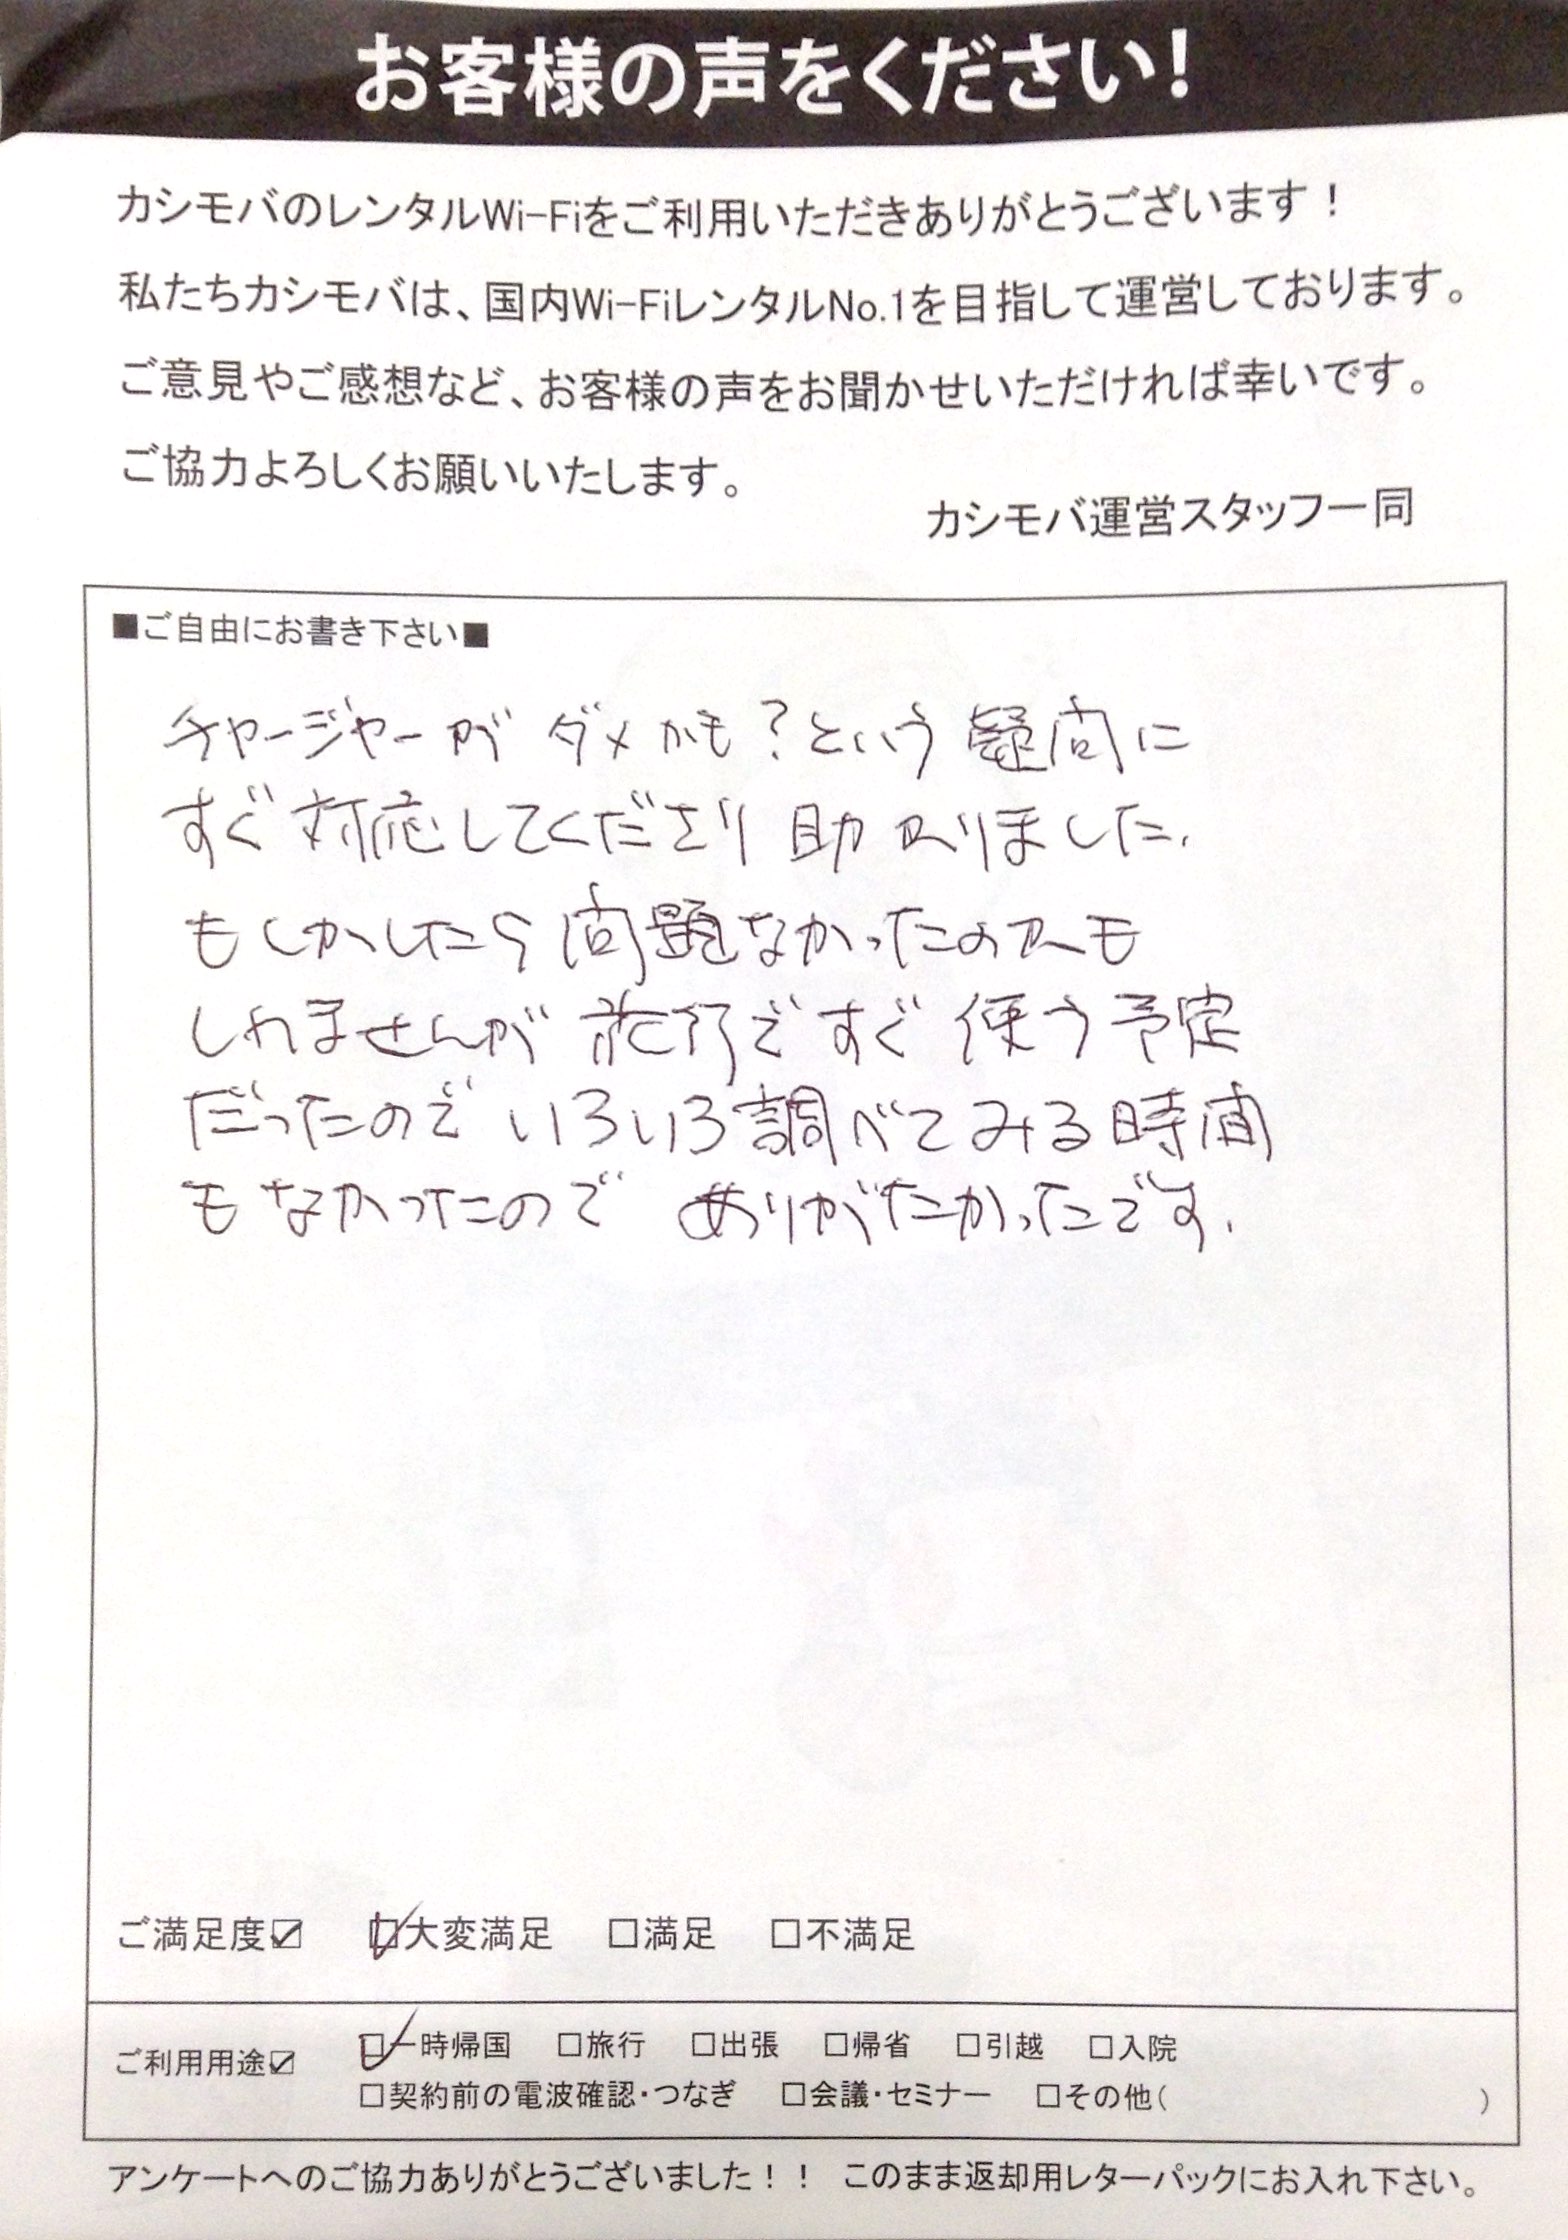 お客様の声をください!
カシモバのレンタルWi-Fiをご利用いただきありがとうございます！
私たちカシモバは、国内Wi-FiレンタルNo.1を目指して運営しております。
ご意見やご感想など、お客様の声をお聞かせいただければ幸いです。
ご協力よろしくお願いいたします。
カシモバ運営スタッフ一同
■ご自由にお書き下さい■
チャージャーがダメかも?という疑問に
すぐ対応してくださり助かりました.
もしかしたら問題なかったのかも
しれませんが旅行ですぐ使う予定
だったのでいろいろ調べてみる時間
もなかったのでありがたかったです.
ご満足度☑ ☑大変満足 □満足 □不満足
ご利用用途☑ ☑一時帰国 □旅行 □出張 □帰省 □引越 □入院
□契約前の電波確認・つなぎ □会議・セミナー □その他( )
アンケートへのご協力ありがとうございました！！ このまま返却用レターパックにお入れ下さい。